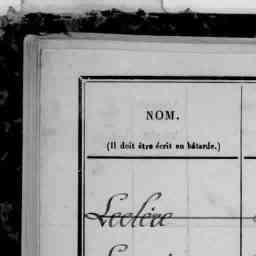 NOM.
(Il doit être écrit en bâtarde.)
Leclère